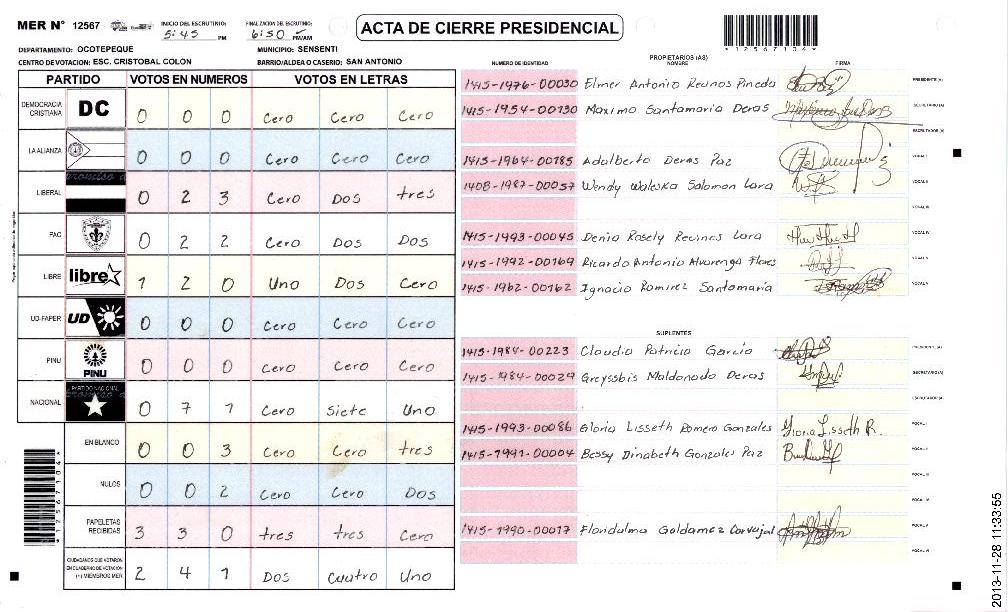 MER N° 12567
INICIO DEL ESCRUTINIO: 5:45 PM
FINALIZACION DEL ESCRUTINIO: 6:50 PM/AM
ACTA DE CIERRE PRESIDENCIAL
*12567104*
DEPARTAMENTO: OCOTEPEQUE
MUNICIPIO: SENSENTI
CENTRO DE VOTACION: ESC. CRISTOBAL COLON
BARRIO/ALDEA O CASERIO: SAN ANTONIO
PARTIDO VOTOS EN NUMEROS VOTOS EN LETRAS
DEMOCRACIA CRISTIANA DC 0 0 0 Cero Cero Cero
LA ALIANZA 0 0 0 Cero Cero Cero
LIBERAL 0 2 3 Cero Dos tres
PAC 0 2 2 Cero Dos Dos
LIBRE libre 1 2 0 Uno Dos Cero
UD-FAPER UD 0 0 0 Cero Cero Cero
PINU PINU 0 0 0 Cero Cero Cero
NACIONAL PARTIDO NACIONAL 0 7 1 Cero Siete Uno
EN BLANCO 0 0 3 Cero Cero tres
NULOS 0 0 2 Cero Cero Dos
PAPELETAS RECIBIDAS 3 3 0 tres tres Cero
CIUDADANOS QUE VOTARON EN CUADERNO DE VOTACION (+) MIEMBROS MER 2 4 1 Dos Cuatro Uno
*12567104*
PROPIETARIOS (AS)
NUMERO DE IDENTIDAD NOMBRE FIRMA
1415-1976-00030 Elmer Antonio Recinos Pineda PRESIDENTE (A)
1415-1954-00130 Maximo Santamaria Deras SECRETARIO (A)
ESCRUTADOR (A)
1415-1964-00185 Adalberto Deras Paz VOCAL I
1408-1987-00057 Wendy Waleska Salomon Lara VOCAL II
VOCAL III
1415-1993-00045 Denia Rosely Recinos Lara VOCAL IV
1415-1992-00169 Ricardo Antonio Alvarenga Flores VOCAL V
1415-1962-00162 Ignacio Ramirez Santamaria VOCAL VI
SUPLENTES
1415-1984-00223 Claudia Patricia Garcia PRESIDENTE (A)
1415-1984-00029 Greyssbis Maldonado Deras SECRETARIO (A)
ESCRUTADOR (A)
1415-1993-00086 Gloria Lisseth Romero Gonzales Gloria Lisseth R. VOCAL I
1415-1991-00004 Bessy Dinabeth Gonzales Paz VOCAL II
VOCAL III
VOCAL IV
1415-1990-00017 Floridalma Galdamez Carvajal VOCAL V
VOCAL VI
2013-11-28 11:33:55